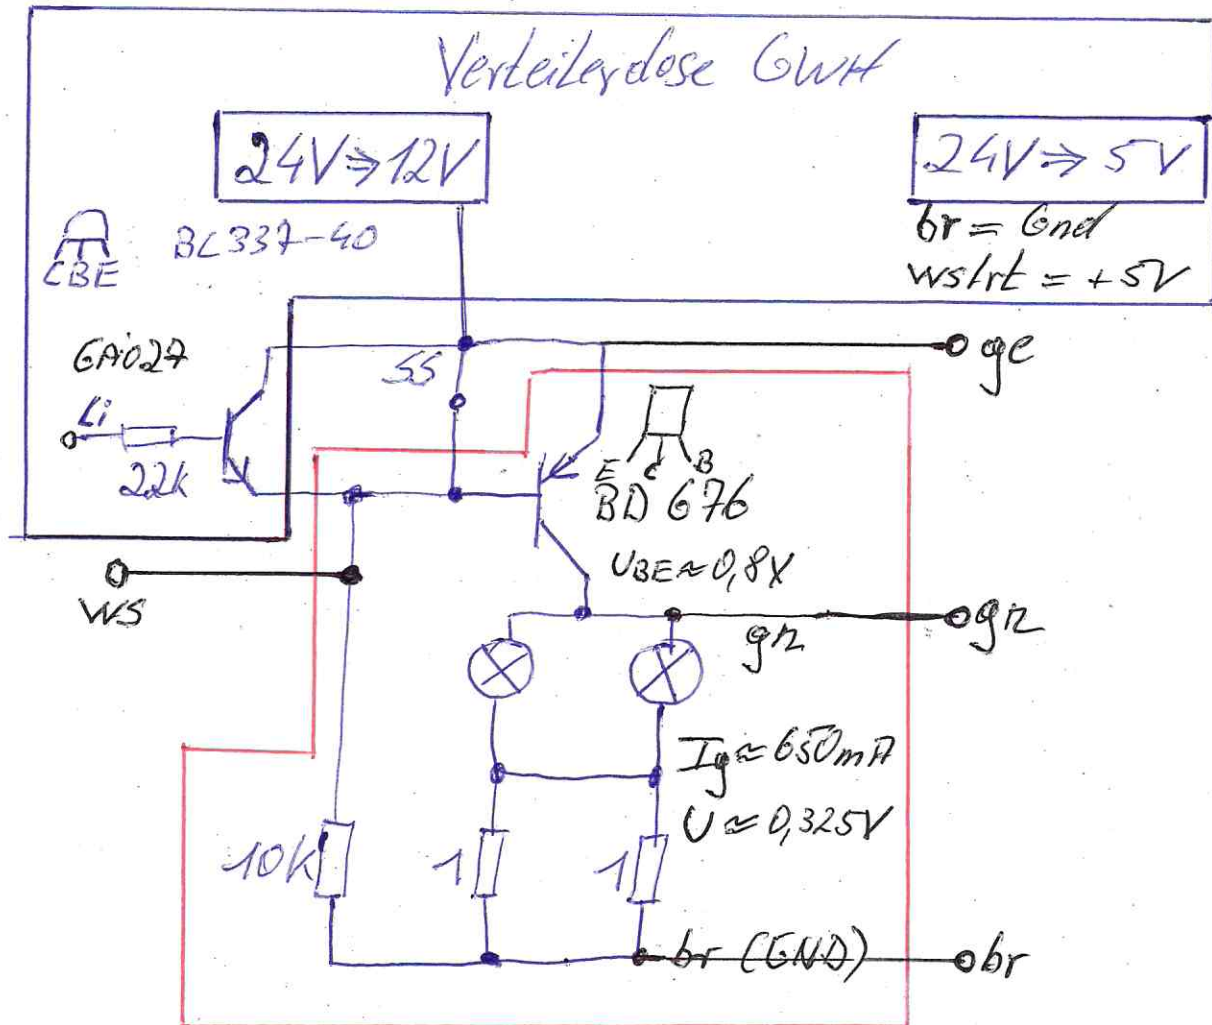 Verteilerdose GWH
24V⇒12V
24V⇒ 5V
br = Gnd
ws/rt = +5V
BC337-40
CBE
GPio27
Li
22k
SS
ge
E C B
BD 676
UBE ≈ 0,8V
ws
gn
gn
Ig ≈ 650mA
U ≈ 0,325V
10k
1
1
br (GND)
br